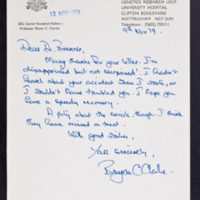 GENETICS RESEARCH UNIT
UNIVERSITY HOSPITAL
CLIFTON BOULEVARD
NOTTINGHAM NG7 2UH
Telephone (0602) 700111
13 NOV 1979
SRC
Professor Bryan C. Clarke
9th Nov 79.
Dear Dr
Many thanks for your letter. I'm
disappointed but not surprised! I hadn't
heard about your accident when I wrote, or
I wouldn't have troubled you. I hope you
have a speedy recovery.
A pity about the snails, though. I think
they have missed a treat.
With good wishes,
Yours sincerely,
Bryan C Clarke